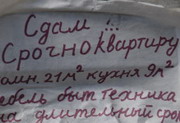 Сдам !!!
Срочно квартиру
омн. 21 м² кухня 9 м²
ебель быт техника
на длительный сро